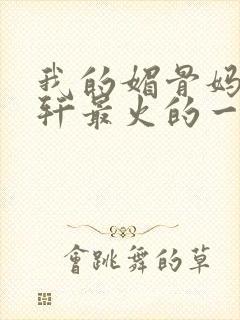 我的媚骨妈
轩最火的一
會跳舞的草